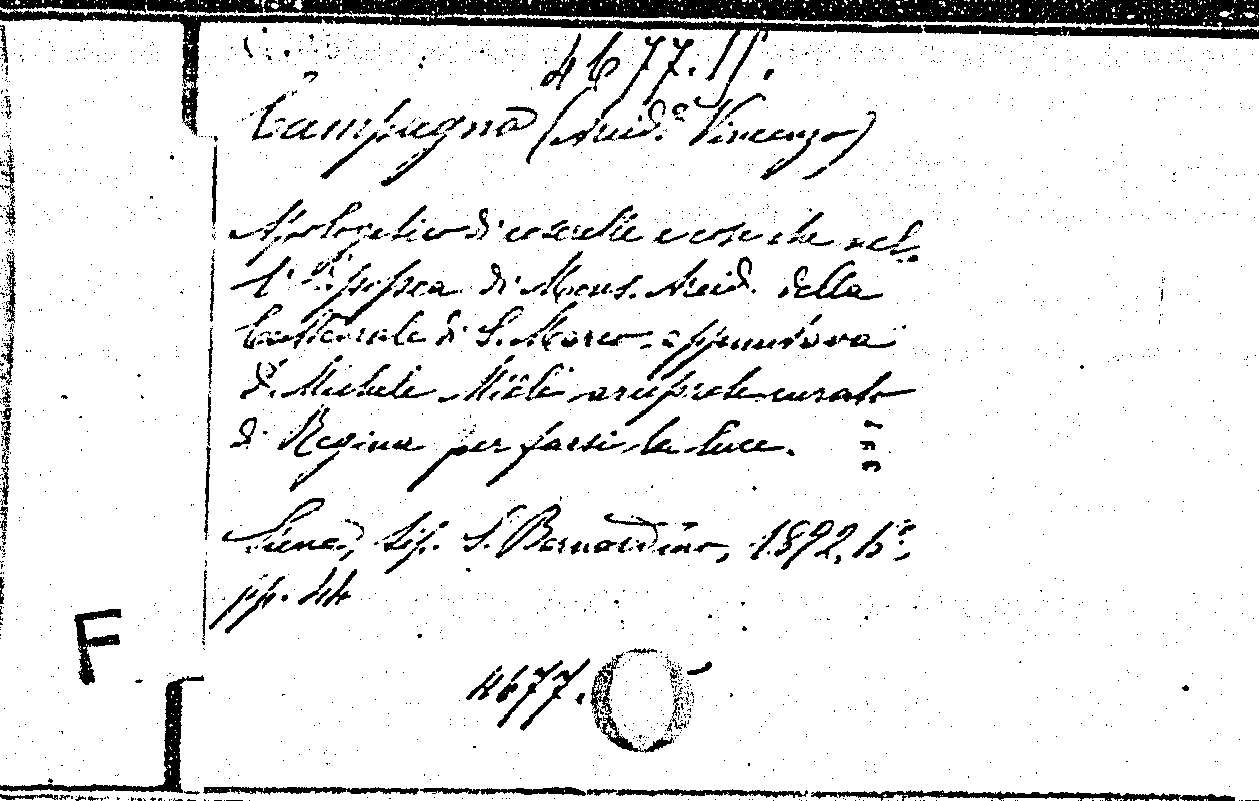 4677.II.
Campagna (Arcid.e Vincenzo)
Apologetico di coserelle e cose che nel-
l' di Mons. Arcid. della
Cattedrale di S. Marco appuntava
d. Michele Miceli arciprete curato
di Regina per farsi la luce.
Siena, tip. S. Bernardino, 1892, 16°,
pp. 44
4677.
F